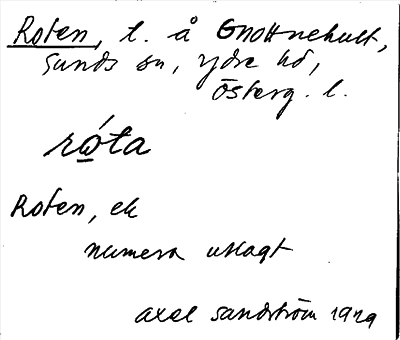 Roten, t. å Gnottnehult,
Sunds sn, Ydre hd,
Österg. l.
róta
Roten, ek
numera utlagt
Axel Sandström 1929